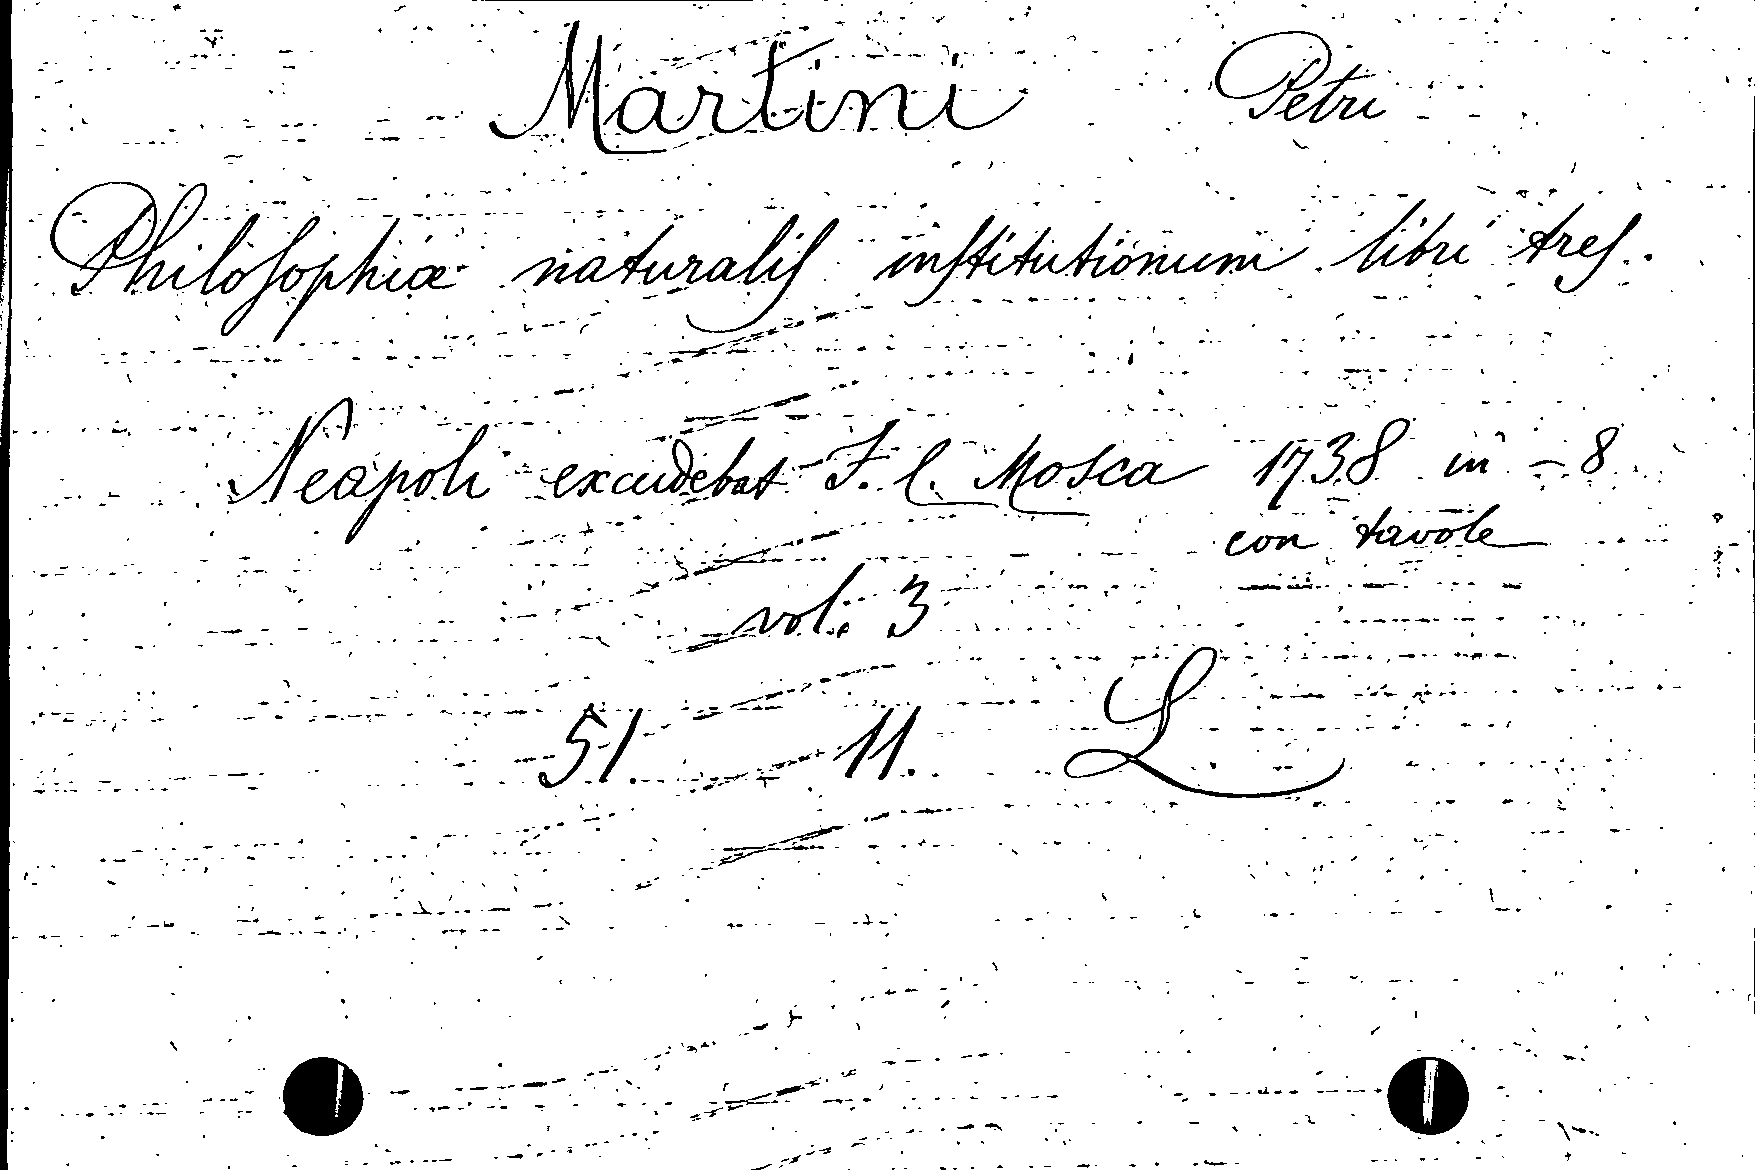 Martini Petri
Philosophiæ naturalis institutionum libri tres.
Neapoli excudebat F. C. Mosca 1738 in-8
con tavole
vol. 3
51. 11. L